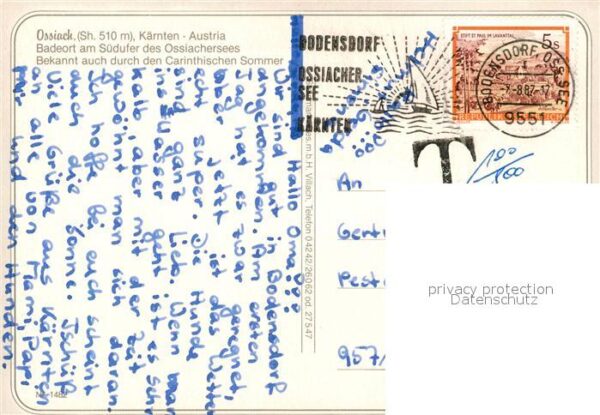 Ossiach, (Sh. 510 m), Kärnten - Austria
Badeort am Südufer des Ossiachersees
Bekannt auch durch den Carinthischen Sommer
BODENSDORF
OSSIACHER
SEE
KÄRNTEN
STIFT ST. PAUL IM LAVANTTAL
5s
REPUBLIK ÖSTERREICH
BODENSDORF OSS. SEE
-8.87-17
9551
T
100
100
Hallo Oma!
Wir sind gut in Bodensdorf
angekommen. Am ersten
Tag hat es zwar geregnet,
aber jetzt ist das Wetter
echt super. Die Hunde
sind ganz lieb. Wenn man
ins Wasser geht, ist es sehr
kalt, aber mit der Zeit
gewöhnt man sich daran.
Ich hoffe bei euch scheint
auch die Sonne. Tschüß
Viele Grüße aus Kärnten
an alle von Mami, Papi
mir und den Hunden.
An
Gert
Pest
957/
m b H. Villach, Telefon 04242/26062 od. 27547
1482
privacy protection
Datenschutz